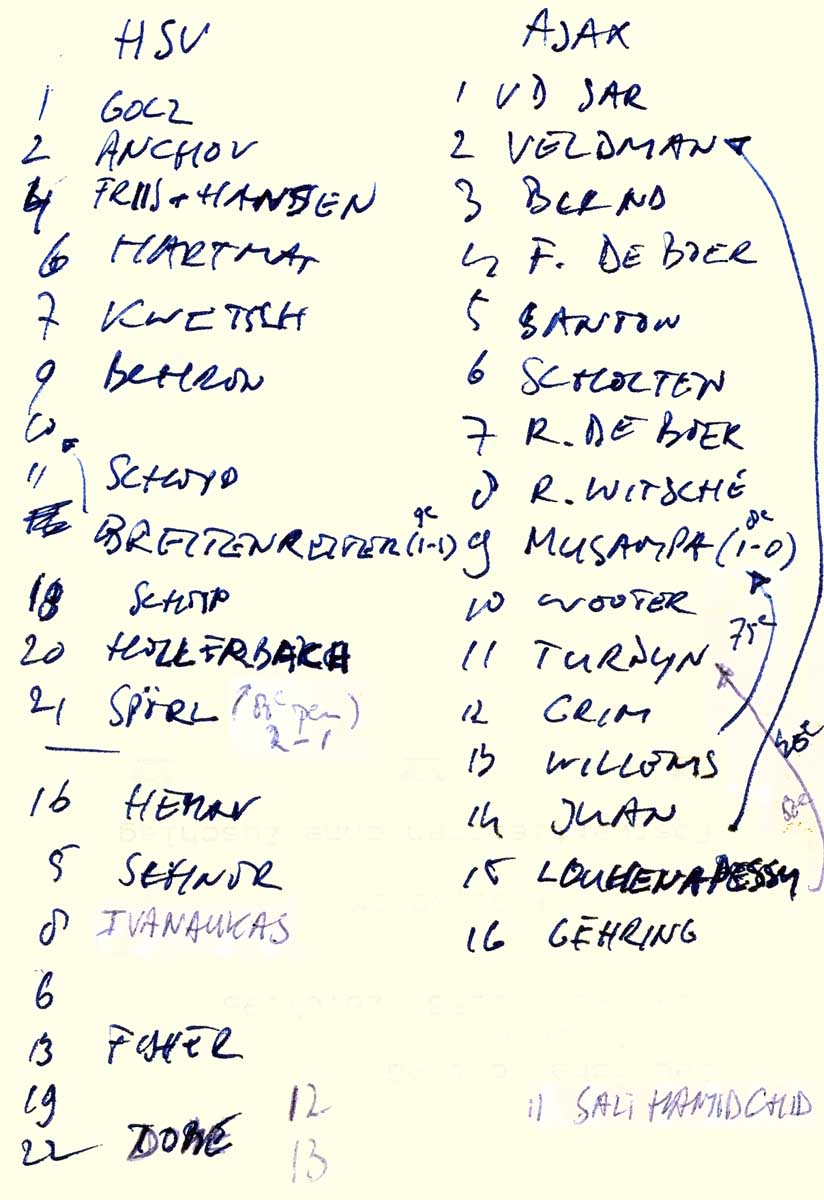 HSV
1 GOLZ
2 ANCHOV
4 FRIIS+HANSEN
6 HARTMA
7 KWETSH
9 BEHRON
10
11 SCHUPP
BREITENREITER (1-1) 9e
18 SCHUPP
20 HOLLERBACH
21 SPÖRL (88e pen) 2-1
16 HEMAV
5 SCHNOR
8 IVANAUKAS
6
13 FISHER
19
22 DOBE
12
13
AJAX
1 VD SAR
2 VELDMAN
3 BLIND
4 F. DE BOER
5 SANTON
6 SCHOLTEN
7 R. DE BOER
8 R. WITSCHÉ
9 MUSAMPA (1-0) 8e
10 WOOTER
11 TURDYN 75e
12 GRIM
13 WILLEMS
46e
14 JUAN 82e
15 LOUHENAPESSY
16 GEHRING
11 SALIHAMIDCHID